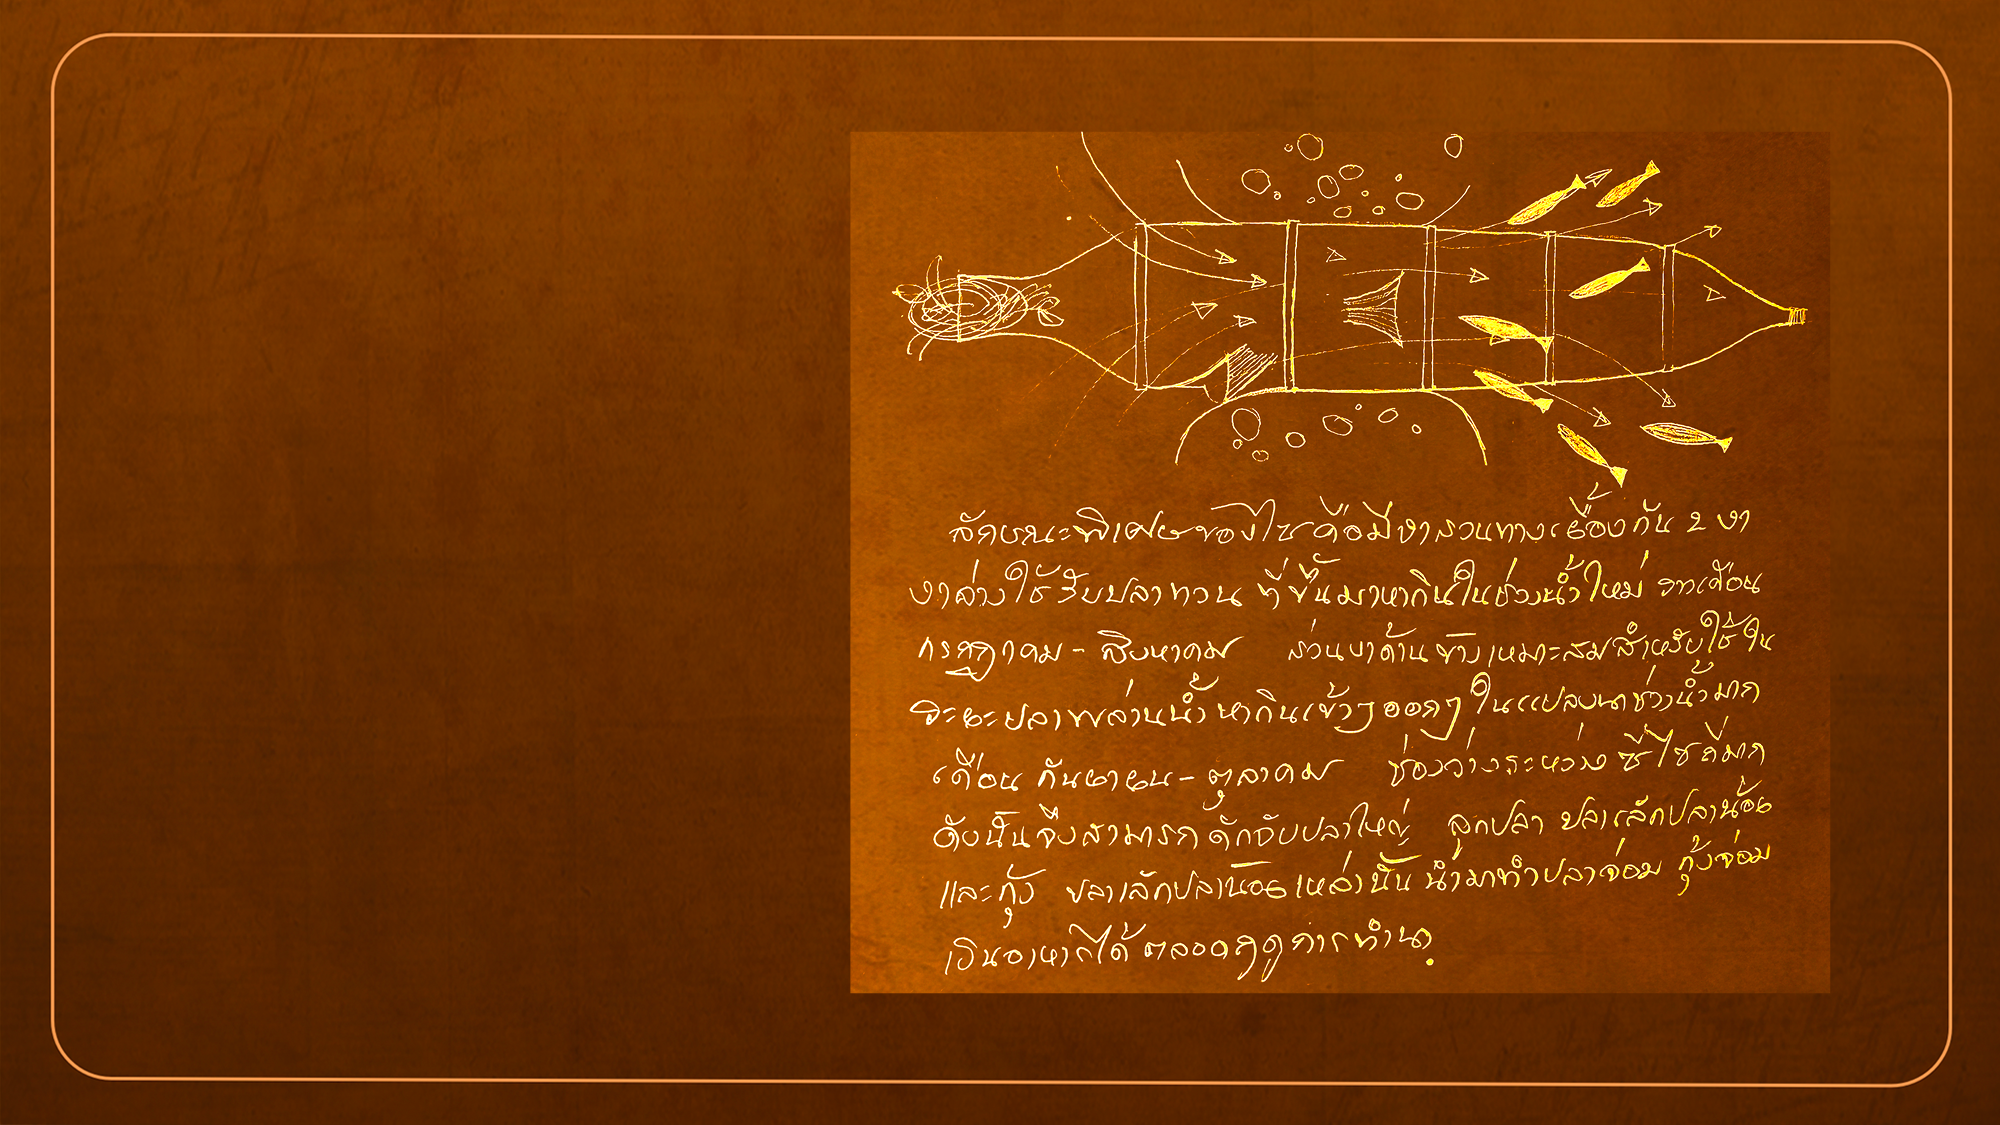 ลักษณะพิเศษของไซ คือมีงาสวนทางเยื้องกัน 2 งา
งาล่างใช้รับปลาทวน ที่ขึ้นมาหากินในช่วงน้ำใหม่ จากเดือน
กรกฎาคม - สิงหาคม ส่วนงาด้านข้างเหมาะสมสำหรับใช้ใน
ระยะปลาพล่านน้ำ หากินเข้าๆออกๆ ในแปลงนาช่วงน้ำมาก
เดือน กันยายน - ตุลาคม ช่องว่างระหว่าง ซี่ไซถี่มาก
ดังนั้นจึงสามารถดักจับปลาใหญ่ ลูกปลา ปลาเล็กปลาน้อย
และกุ้ง ปลาเล็กปลาน้อยเหล่านี้ นำมาทำปลาจ่อม กุ้งจ่อม
เป็นอาหารได้ ตลอดฤดูการทำนา.